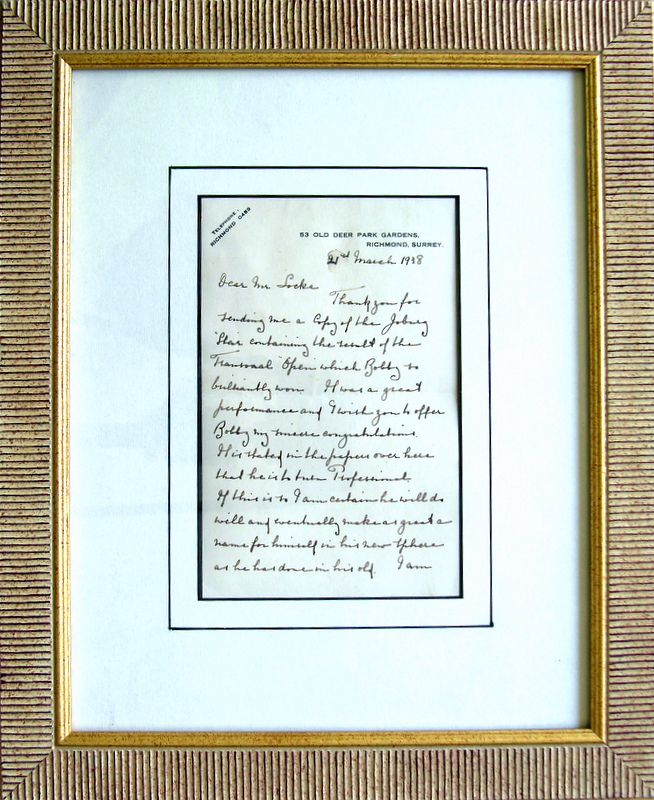 TELEPHONE,
RICHMOND 0489
53 OLD DEER PARK GARDENS,
RICHMOND, SURREY.
21st March 1938
Dear Mr Locke
Thank you for
sending me a Copy of the Joburg
Star containing the result of the
Transvaal "Open" which Bobby so
brilliantly won. It was a great
performance and I wish you to offer
Bobby my sincere congratulations.
It is stated in the papers over here
that he is to turn Professional.
If this is so I am certain he will do
well and eventually make as great a
name for himself in his new sphere
as he has done in his old. I am